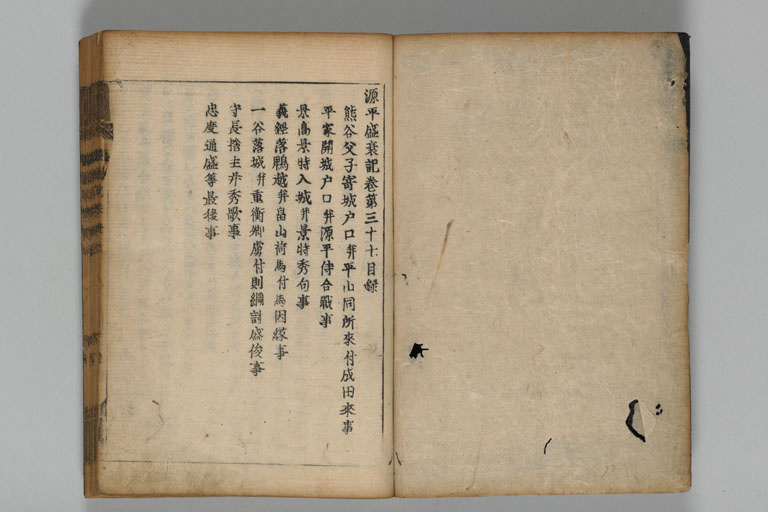 源平盛衰記巻第三十七目録
熊谷父子寄城戸口并平山同所来付成田来事
平家開城戸口并源平侍合戦事
景高景時入城并景時秀句事
義経落鵯越并畠山荷馬付馬因縁事
一谷落城并重衡卿虜付則綱討盛俊事
守長捨主并秀歌事
忠度通盛等最後事